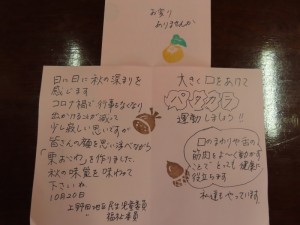 お変り
ありませんか
日に日に秋の深まりを
感じます
コロナ禍で行事もなくなり
出かけることが減って
少し寂しい思いですが
皆さんの顔を思い浮べながら
「栗おこわ」を作りました。
秋の味覚を味わって
下さいね
10月20日
上野田地区民生児童委員
福祉委員
大きく口をあけて
パタカラ
運動しましょう!!
口のまわりや舌の
筋肉をよ〜く動かす
ことでとっても健康に
役立ちます
私達もやっています。